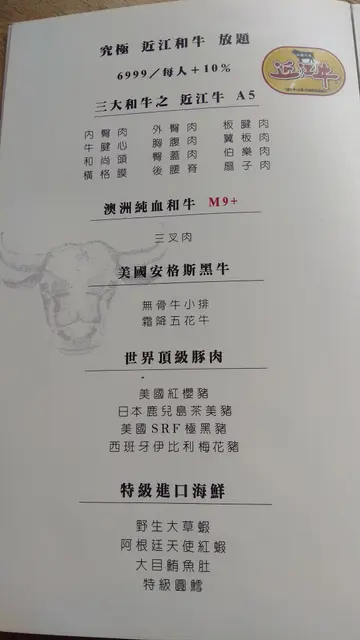 究極 近江和牛 放題
6999／每人＋10%
近江牛
三大和牛之 近江牛 A5
內臀肉 外臀肉 板腱肉
牛腱心 胸腹肉 翼板肉
和尚頭 臀蓋肉 伯樂肉
橫格膜 後腰脊 扇子肉
澳洲純血和牛 M9+
三叉肉
美國安格斯黑牛
無骨牛小排
霜降五花牛
世界頂級豚肉
美國紅櫻豬
日本鹿兒島茶美豬
美國SRF極黑豬
西班牙伊比利梅花豬
特級進口海鮮
野生大草蝦
阿根廷天使紅蝦
大目鮪魚肚
特級圓鱈